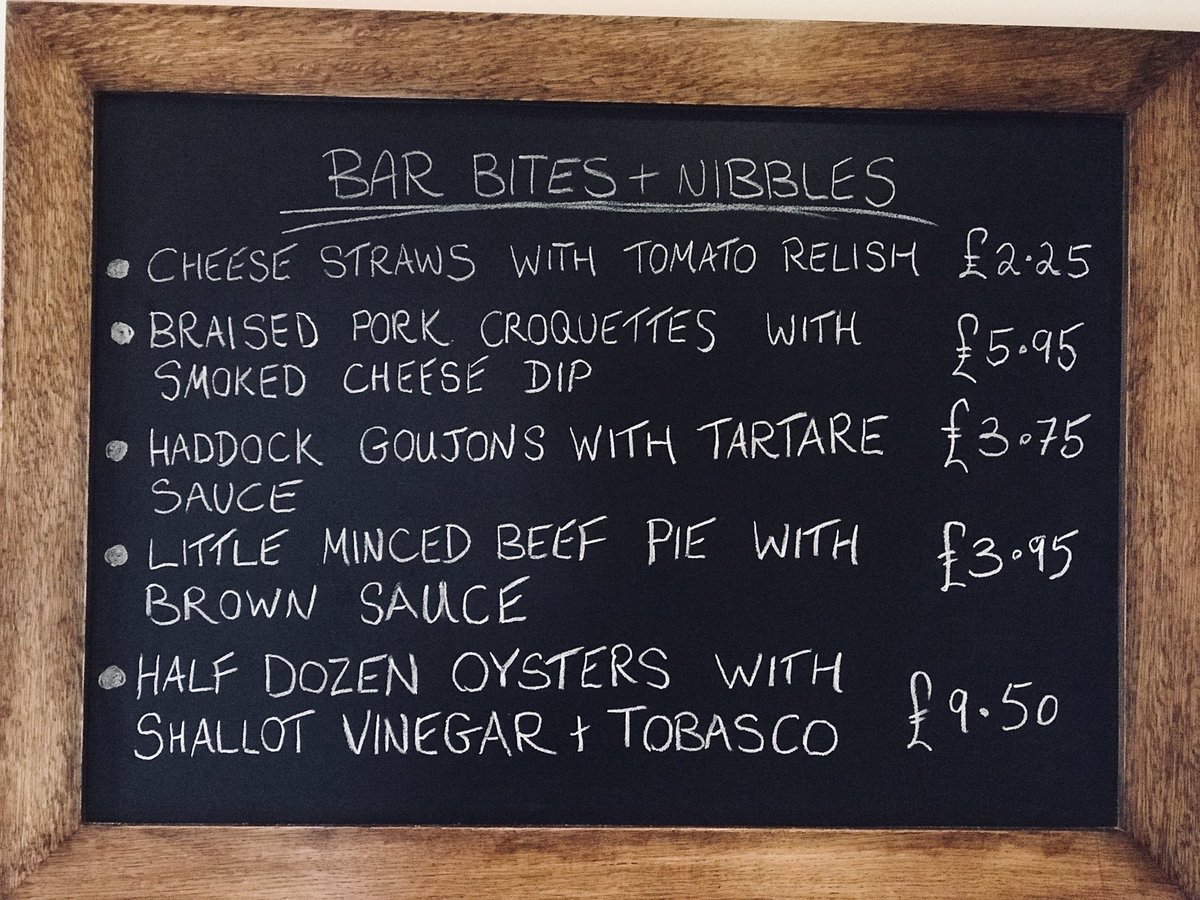 BAR BITES + NIBBLES
• CHEESE STRAWS WITH TOMATO RELISH £2.25
• BRAISED PORK CROQUETTES WITH £5.95
SMOKED CHEESE DIP
• HADDOCK GOUJONS WITH TARTARE £3.75
SAUCE
• LITTLE MINCED BEEF PIE WITH £3.95
BROWN SAUCE
• HALF DOZEN OYSTERS WITH
SHALLOT VINEGAR + TOBASCO £9.50